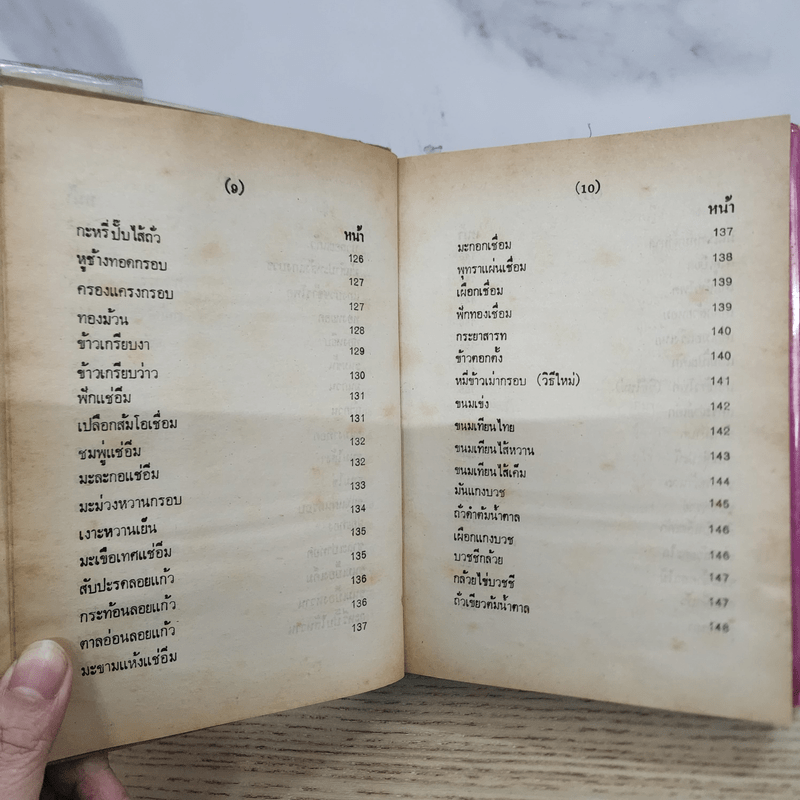 (9)
หน้า
กะหรี่ปั๊บไส้ถั่ว 126
หูช้างทอดกรอบ 127
ครองแครงกรอบ 127
ทองม้วน 128
ข้าวเกรียบงา 129
ข้าวเกรียบว่าว 130
ฟักแช่อิ่ม 131
เปลือกส้มโอเชื่อม 131
ชมพู่แช่อิ่ม 132
มะละกอแช่อิ่ม 132
มะม่วงหวานกรอบ 133
เงาะหวานเย็น 134
มะเขือเทศแช่อิ่ม 135
สับปะรดลอยแก้ว 135
กระท้อนลอยแก้ว 136
ตาลอ่อนลอยแก้ว 136
มะขามแห้งแช่อิ่ม 137
(10)
หน้า
มะกอกเชื่อม 137
พุทราแผ่นเชื่อม 138
เผือกเชื่อม 139
ฟักทองเชื่อม 139
กระยาสารท 140
ข้าวตอกตั้ง 140
หมี่ข้าวเม่ากรอบ (วิธีใหม่) 141
ขนมเข่ง 142
ขนมเทียนไทย 142
ขนมเทียนไส้หวาน 143
ขนมเทียนไส้เค็ม 144
มันแกงบวช 145
ถั่วดำต้มน้ำตาล 146
เผือกแกงบวช 146
บวชชีกล้วย 147
กล้วยไข่บวชชี 147
ถั่วเขียวต้มน้ำตาล 148